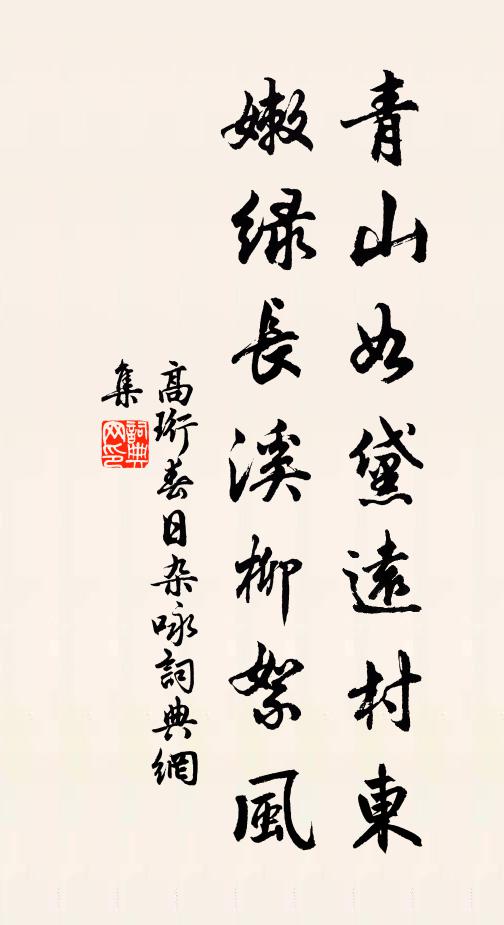 青山如黛遠村東
嫩緑長溪柳絮風
高珩春日杂咏詞典網
集
詞典网印